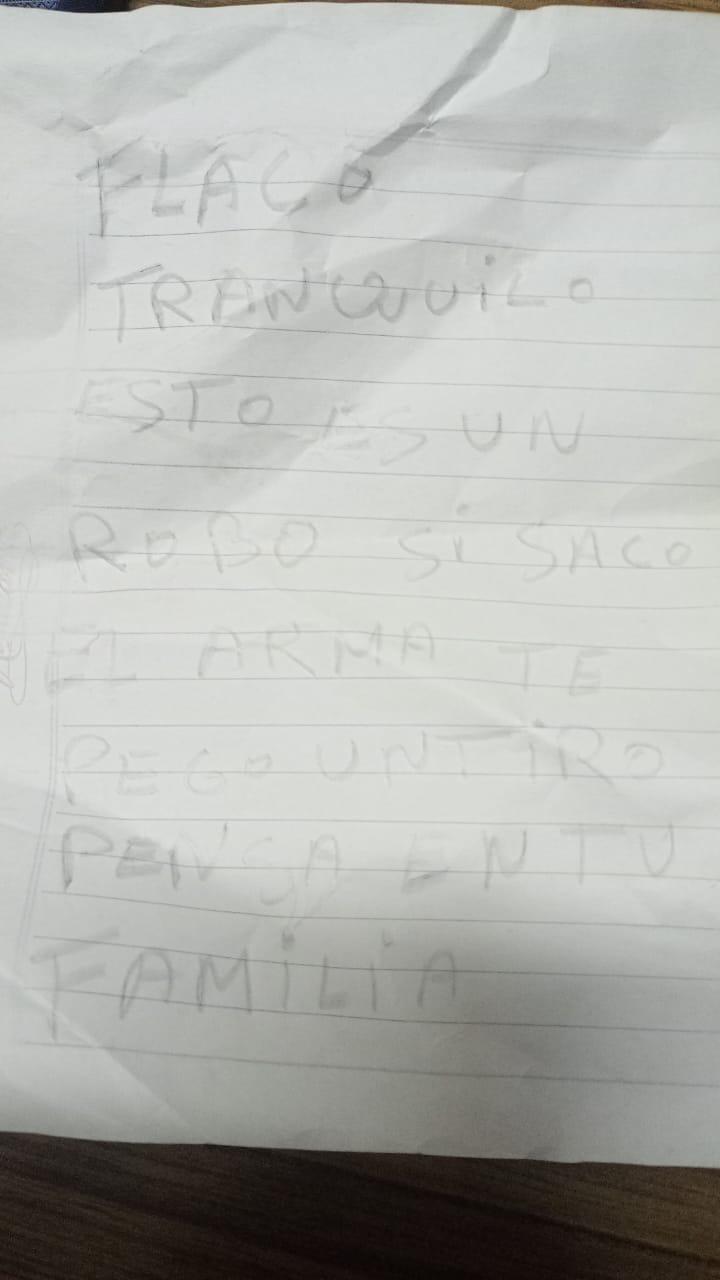 FLACO
TRANQUILO
ESTO ES UN
ROBO Si SACO
EL ARMA TE
PEGO UN TiRO
PENSA EN TU
FAMiLiA